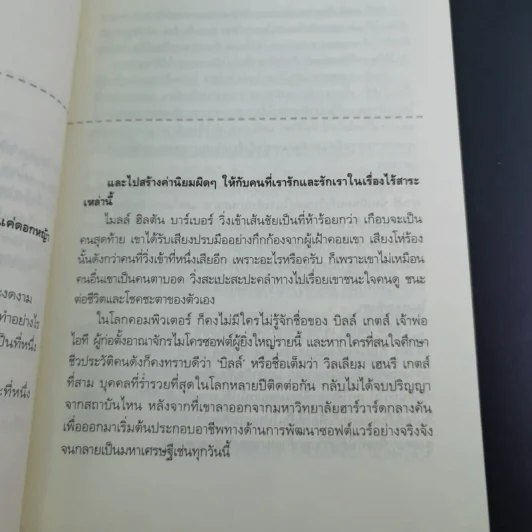 และไปสร้างค่านิยมผิดๆ ให้กับคนที่เรารักและรักเราในเรื่องไร้สาระ
เหล่านี้
ไมลส์ ฮิลตัน บาร์เบอร์ วิ่งเข้าเส้นชัยเป็นที่ห้าร้อยกว่า เกือบจะเป็น
คนสุดท้าย เขาได้รับเสียงปรบมืออย่างกึกก้องจากผู้เฝ้าคอยเขา เสียงโห่ร้อง
นั้นดังกว่าคนที่วิ่งเข้าที่หนึ่งเสียอีก เพราะอะไรหรือครับ ก็เพราะเขาไม่เหมือน
คนอื่นเขาเป็นคนตาบอด วิ่งสะเปะสะปะคลำทางไปเรื่อยเขาชนะใจคนดู ชนะ
ต่อชีวิตและโชคชะตาของตัวเอง
ในโลกคอมพิวเตอร์ ก็คงไม่มีใครไม่รู้จักชื่อของ บิลล์ เกตส์ เจ้าพ่อ
ไอที ผู้ก่อตั้งอาณาจักรไมโครซอฟต์ผู้ยิ่งใหญ่รายนี้ และหากใครที่สนใจศึกษา
ชีวประวัติคนดังก็คงทราบดีว่า 'บิลล์' หรือชื่อเต็มว่า วิลเลียม เฮนรี เกตส์
ที่สาม บุคคลที่ร่ำรวยที่สุดในโลกหลายปีติดต่อกัน กลับไม่ได้จบปริญญา
จากสถาบันไหน หลังจากที่เขาลาออกจากมหาวิทยาลัยฮาร์วาร์ดกลางคัน
เพื่อออกมาเริ่มต้นประกอบอาชีพทางด้านการพัฒนาซอฟต์แวร์อย่างจริงจัง
จนกลายเป็นมหาเศรษฐีเช่นทุกวันนี้
แค่ดอกหญ้า
งดงาม
ทำอย่างไร
เป็นที่หนึ่ง
ะที่หนึ่ง